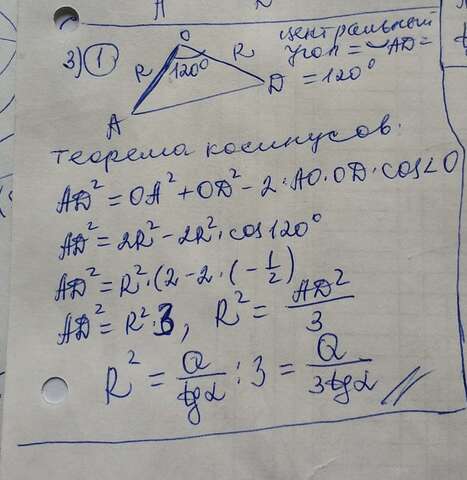 A D
3) 1
O
R R
120°
A
D
центральный
угол = ◡AD =
= 120°
теорема косинусов.
AD² = OA² + OD² - 2·AO·OD·cos∠O
AD² = 2R² - 2R²·cos120°
AD² = R²·(2 - 2·(-1/2)
AD² = R²·3, R² = AD²/3
R² = Q/tgα : 3 = Q/3tgα //